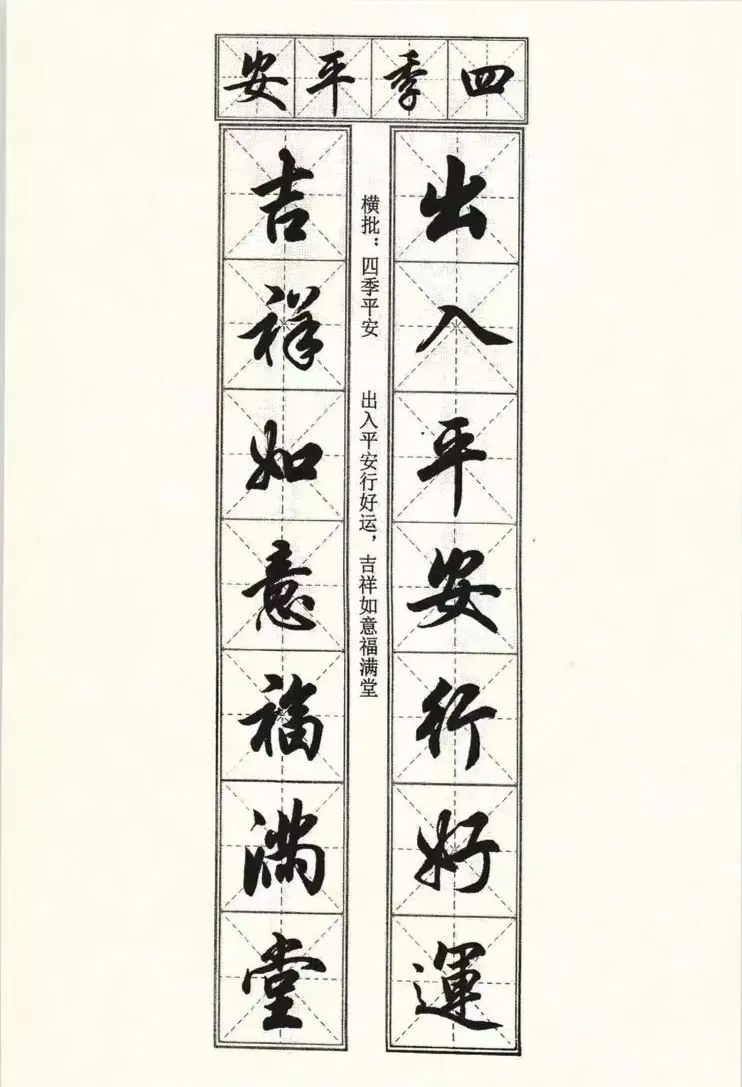 四季平安
出入平安行好運
横批：四季平安　出入平安行好运，吉祥如意福满堂
吉祥如意福滿堂